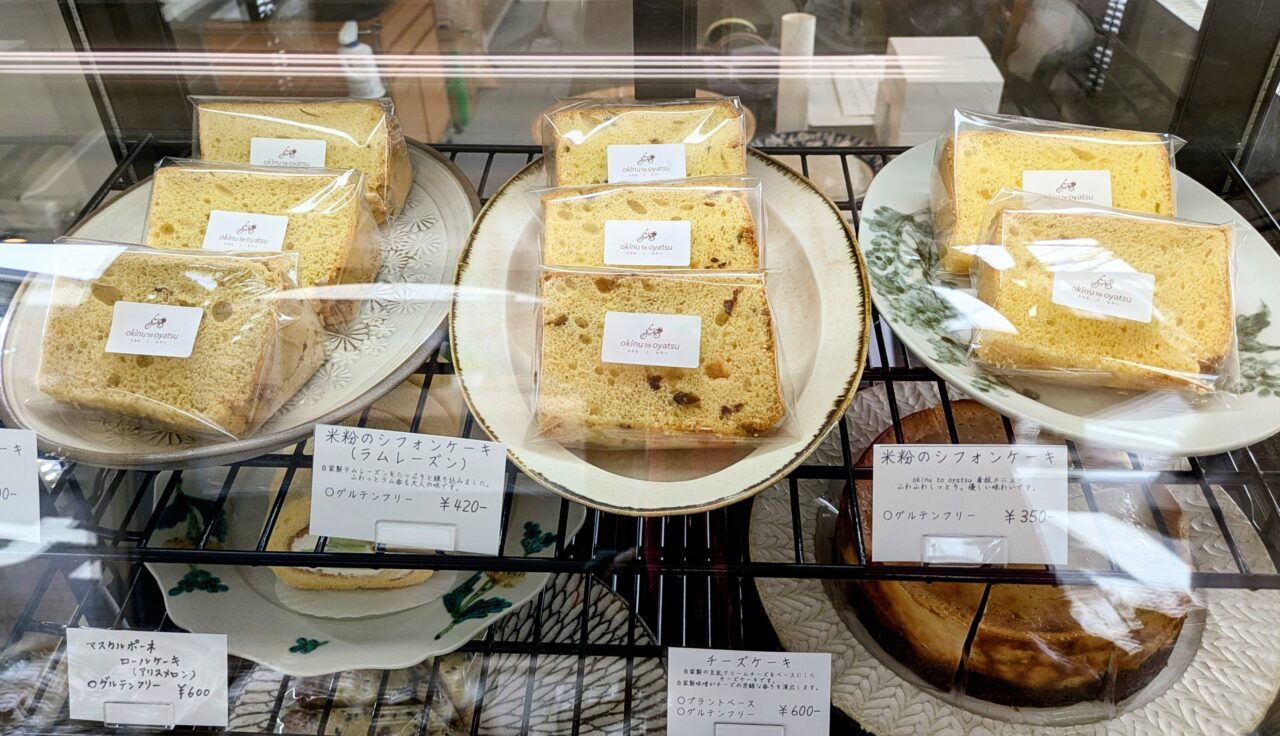 okinu to oyatsu
okinu to oyatsu
okinu to oyatsu
okinu to oyatsu
okinu to oyatsu
okinu to oyatsu
okinu to oyatsu
okinu to oyatsu
米粉のシフォンケーキ
(ラムレーズン)
自家製ラムレーズンをたっぷりと練り込みました。
ふわっとラム香る大人の味です。
○グルテンフリー ¥420-
米粉のシフォンケーキ
okinu to oyatsu 看板メニュー。
ふわふわしっとり。優しい味わいです。
○グルテンフリー ¥350
マスカルポーネ
ロールケーキ
(アリスメロン)
○グルテンフリー ¥600
チーズケーキ
自家製の豆乳クリームチーズをベースにした
チーズケーキです。
自家製味噌がチーズの芳醇な香りを演出します。
○プラントベース
○グルテンフリー ¥600-